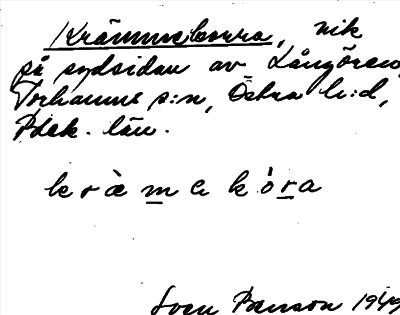 Krämmekorra, vik
på sydsidan av Långören,
Torhamns s:n, Östra h:d,
Blek. län.
kràmekóra
Sven Benson 1949